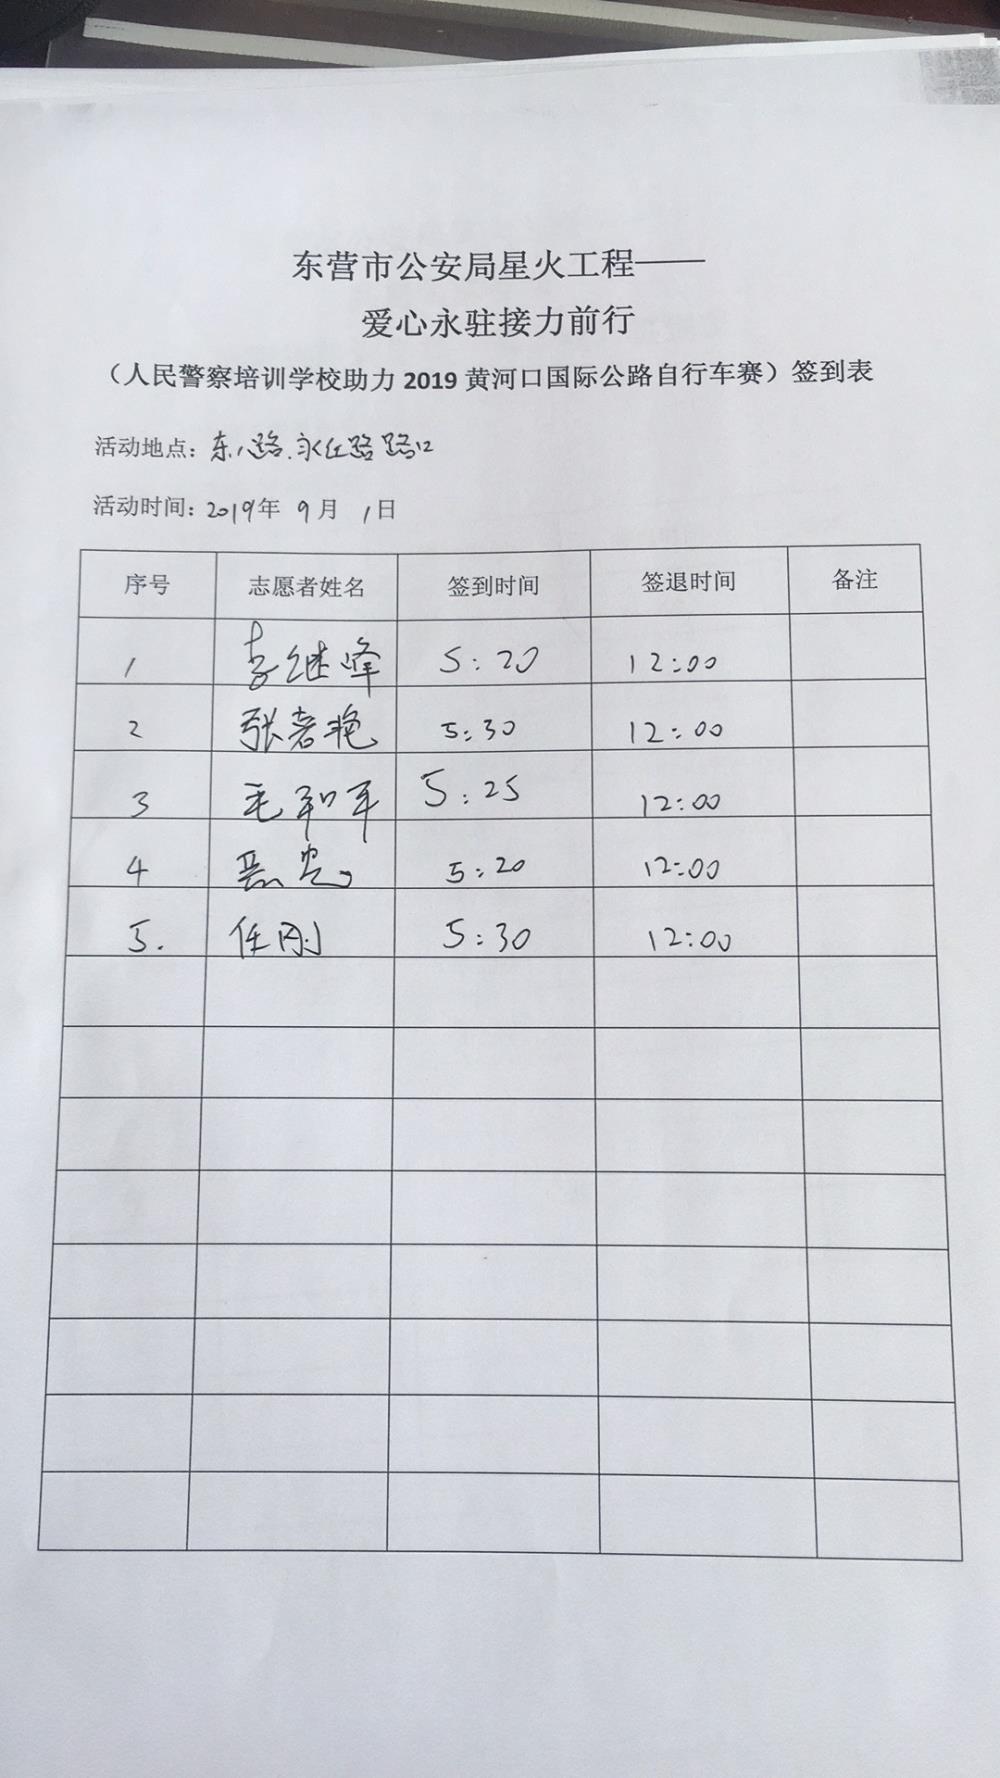 东营市公安局星火工程——
爱心永驻接力前行
（人民警察培训学校助力 2019 黄河口国际公路自行车赛）签到表
活动地点：东八路.永红路路口
活动时间：2019年 9月 1日
序号 志愿者姓名 签到时间 签退时间 备注
1 李继峰 5:20 12:00
2 张艳 5:30 12:00
3 毛和平 5:25 12:00
4 5:20 12:00
5. 任刚 5:30 12:00